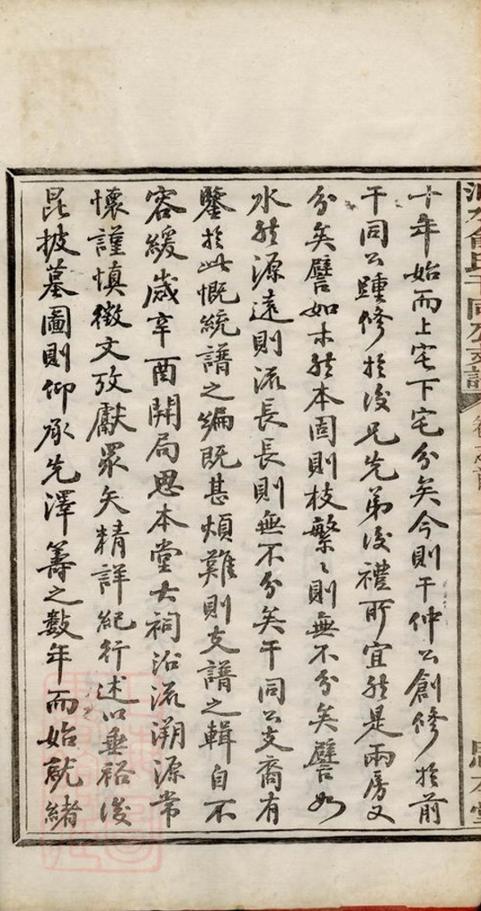 十年始而上宅下宅分矣今則干仲公創修於前
干同公踵修於後兄先弟後禮所宜然是兩房又
分矣譬如木然本固則枝繁〻則無不分矣譬如
水然源遠則流長長則無不分矣干同公支裔有
鑒於此慨統譜之編既甚煩難則支譜之輯自不
容緩歲辛酉開局思本堂大祠沿流溯源常
懷謹慎徵文攷獻眾矢精詳紀行述以垂裕後
昆披墓圖則仰承先澤籌之數年而始就緒